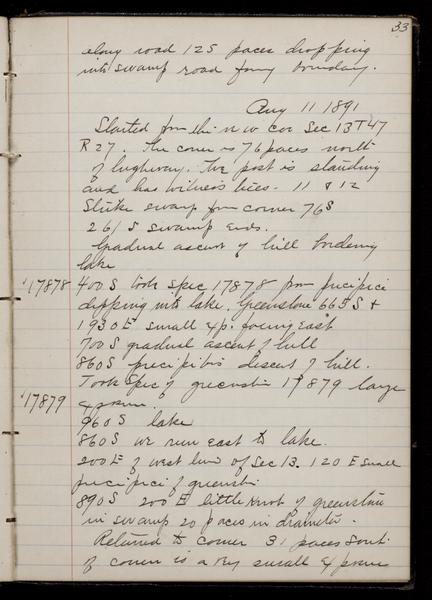 33
along road 125 paces dropping
into swamp road forming boundary.
Aug 11 1891
Started from the n w cor Sec 13 T47
R27. The corner is 76 paces north
of highway. The post is standing
and has witness trees. 11 & 12
Strike swamp from corner 76S
261 S swamp ends.
Gradual ascent of hill bordering
lake
17878 400 S took spec 17878 from precipice
dipping into lake. Greenstone 665 S +
1930 E small exp. facing East
700 S gradual ascent of hill
860 S precipitous descent of hill.
Took Spec of greenstone 17879 large
17879 exposure.
960 S lake
860 S we run East to lake.
200 E of west line of Sec 13. 120 E small
precipice of greenstone
890 S 200 E little knot of greenstone
in swamp 20 paces in diameter.
Returned to corner 31 paces South
of corner is a very small exposure